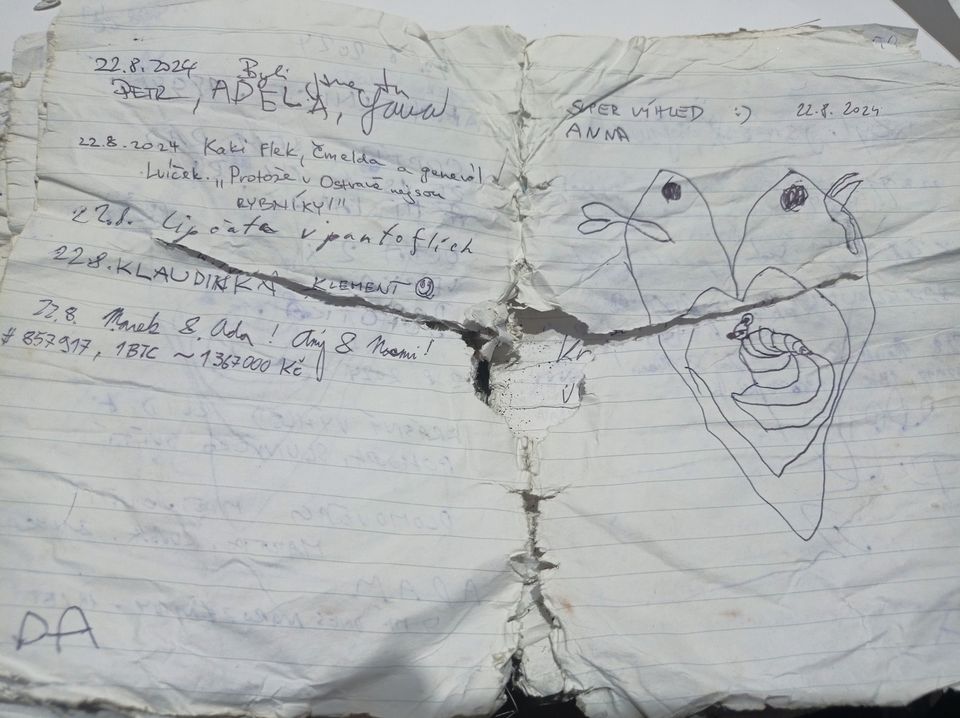 22.8.2024 Byli jsme tu
PETR, ADÉLA, Jana
22.8.2024 Kaki Flek, Čmelda a generál
Lvíček. „Protože v Ostravě nejsou
RYBNÍKY!"
22.8. Cipčata v pantoflích
22.8. KLAUDINKA KLEMENT
22.8. Marek & Ada! Any & Noemi!
# 857917, 1BTC ~ 1367000 Kč
DA
SUPER VÝHLED :) 22.8.2024
ANNA
Kr
V